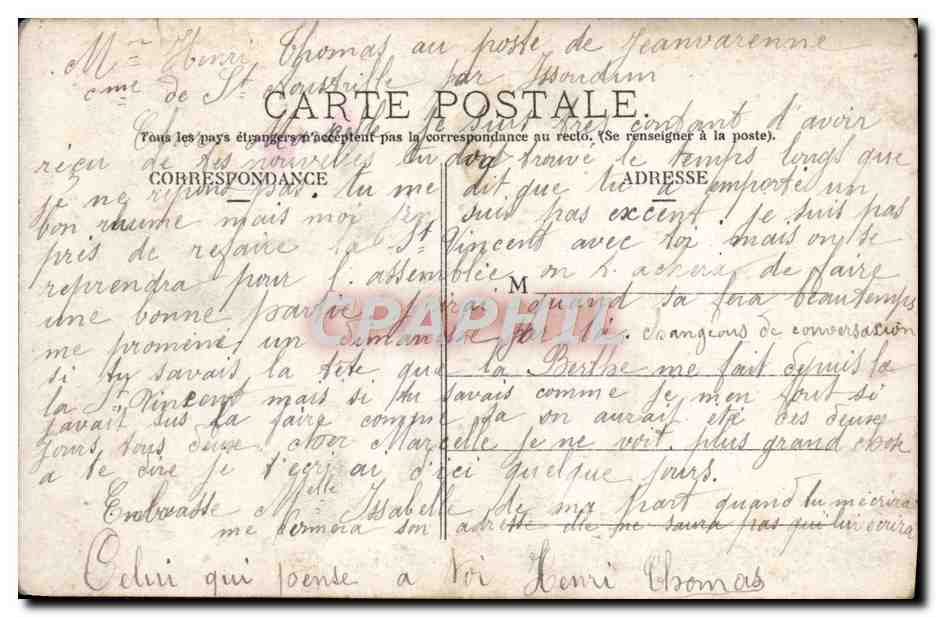 Mr Henri Thomas au poste de Jeanvarenne
cme de St par Issoudun
CARTE POSTALE.
Cher je suis tres contant d'avoir
Tous les pays étrangers n'acceptent pas la correspondance au recto. (Se renseigner à la poste).
reçu de tes nouvelles tu doa trouvé le temps longs que
CORRESPONDANCE
ADRESSE
je ne repond pas. tu me dit que tu a emporté un
bon rhume mais moi suis pas excent. je suis pas
près de refaire la St Vincent avec toi mais on se
reprendra pour l'assemblée on de faire
M
une bonne partie jirai quand sa fera beau temps
CPAPHIL
me promené un dimanche par changeons de conversasion
si tu savais la tête que la Berthe me fait depuis la
la St Vincent mais si tu savais comme je men fout si
javait sus la faire comme sa on aurait etè ces deux
jours tous deux. cher Marcelle je ne voit plus grand chose
a te dire je t'ecrirai d'ici quelque jours.
Enbrasse Melle Issabelle de ma part quand tu mecrira
me dernera son adresse elle ne saura pas qui lui ecrira
Celui qui pense a toi Henri Thomas